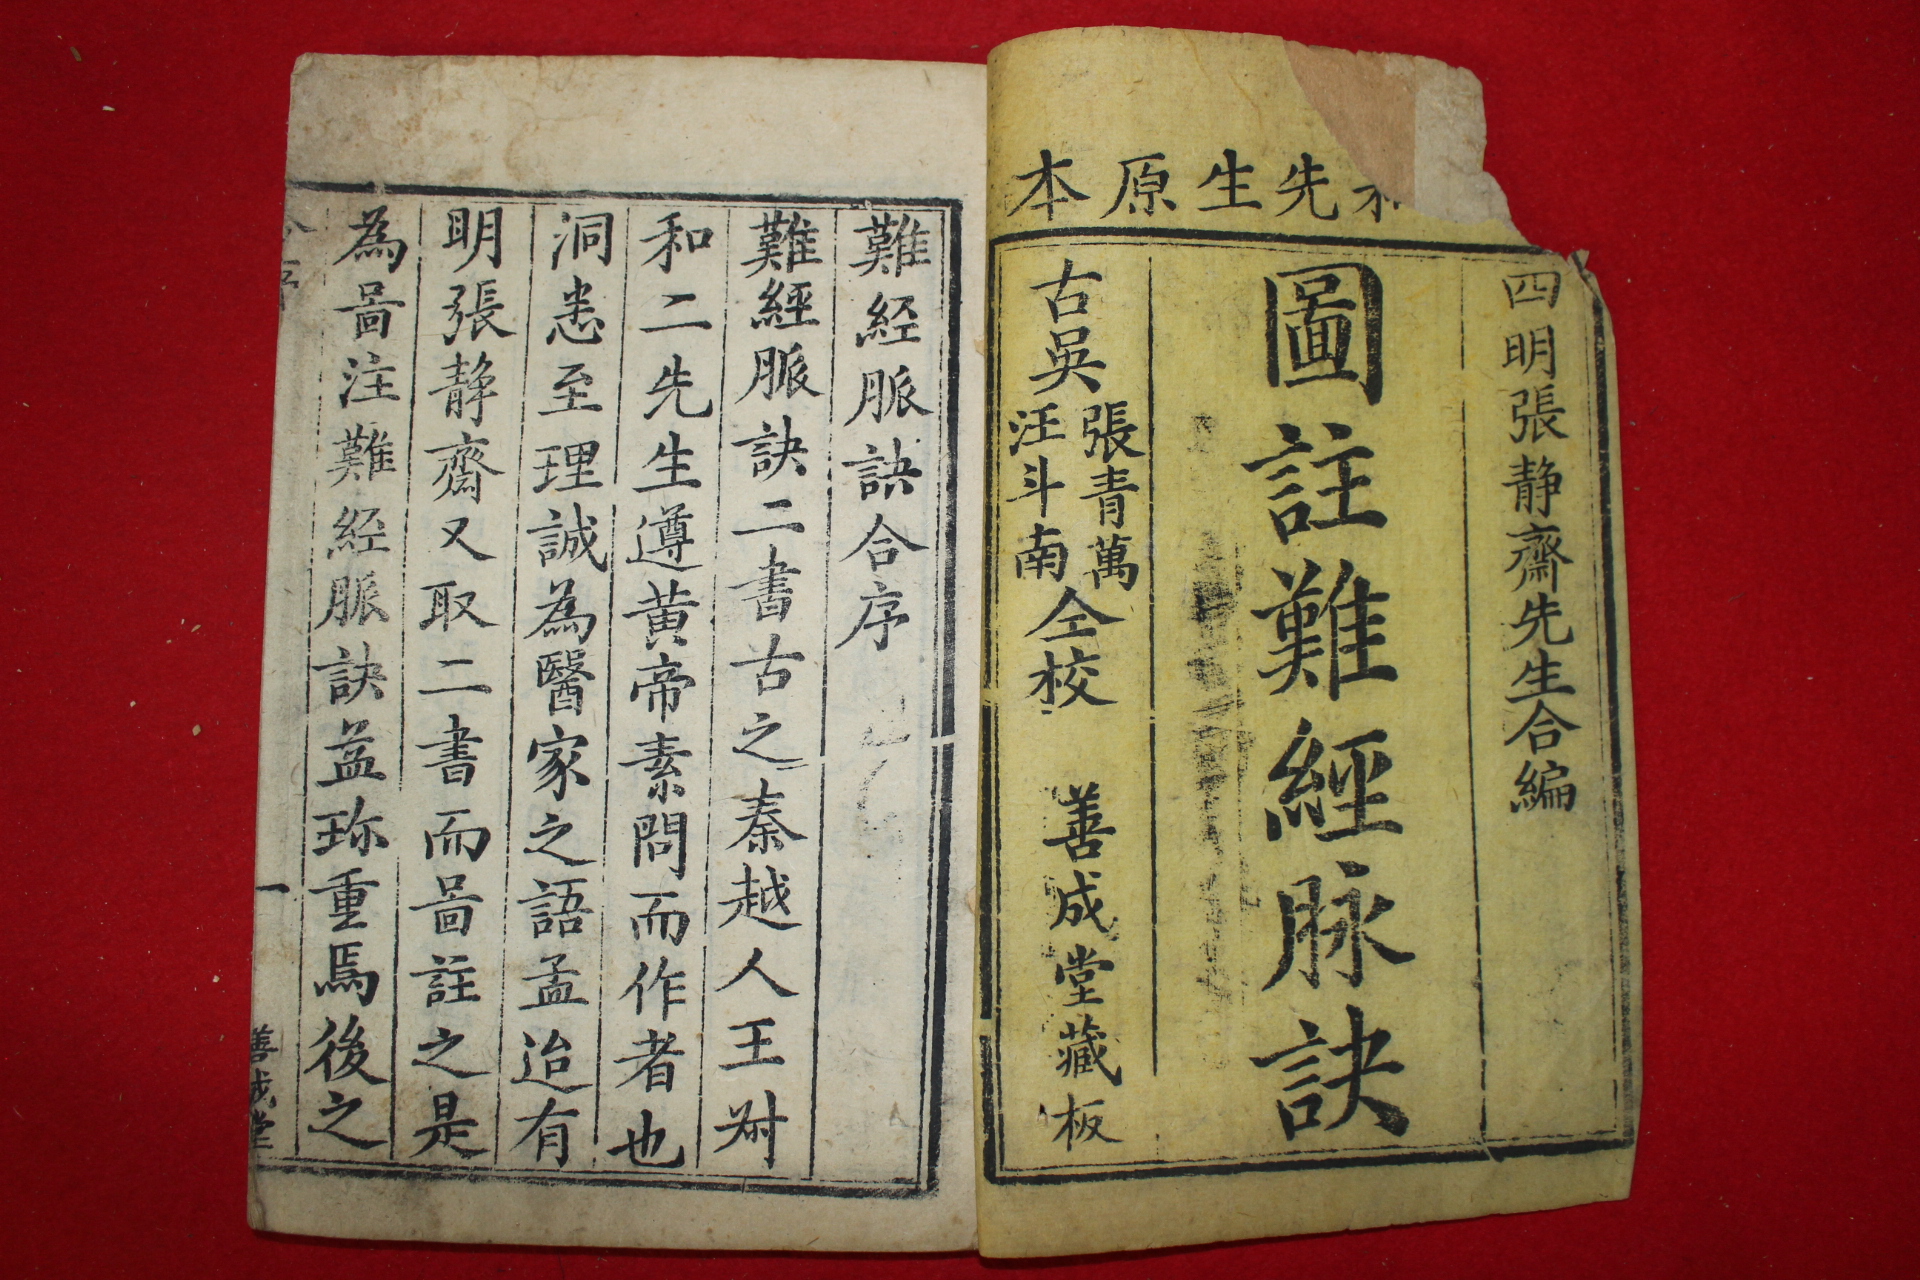 先生原本
四明張靜齋先生合編
圖註難經脉訣
古吳
張青萬
汪斗南
仝校
善成堂藏板
難經脈訣合序
難經脈訣二書古之秦越人王尗
和二先生遵黃帝素問而作者也
洞悉至理誠為醫家之語孟迨有
明張靜齋又取二書而啚註之是
為啚注難經脈訣葢珎重焉後之
一
善成堂